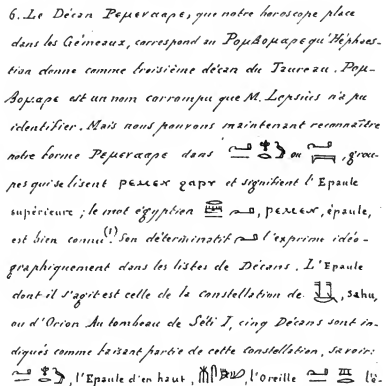 6. Le Décan Ρεμενααρε, que notre horoscope place
dans les Gémeaux, correspond au Ρομβομαρε qu'Héphaes-
tion donne comme troisième décan du Taureau. Ρομ-
βομαρε est un nom corrompu que M. Lepsius n'a pu
identifier. Mais nous pouvons maintenant reconnaître
notre forme Ρεμενααρε dans ou , grou-
pes qui se lisent et signifient l'Epaule
supérieure ; le mot égyptien , , épaule,
est bien connu.(1) Son déterminatif l'exprime idéo-
graphiquement dans les listes de Décans. L'Epaule
dont il s'agit est celle de la constellation de , Sahu,
ou d'Orion Au tombeau de Séti I, cinq Décans sont in-
diqués comme faisant partie de cette constellation, savoir:
, l'Epaule d'en haut, , l'Oreille l'é-